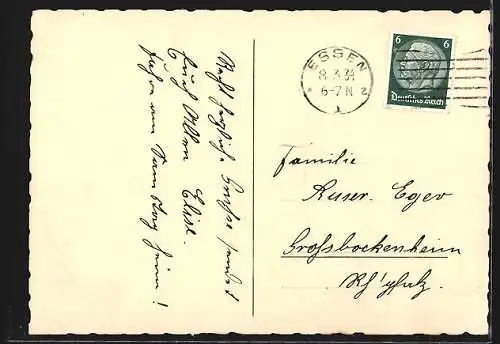 Recht herzliche Grüsse sendet
Euch Allen Elise.
fahre am Samstag heim!
ESSEN
8.3.34
6-7 N
2
6 6
Deutsches Reich
Familie
Kuser. Eger
Grossbockenheim
Rh'pfalz.